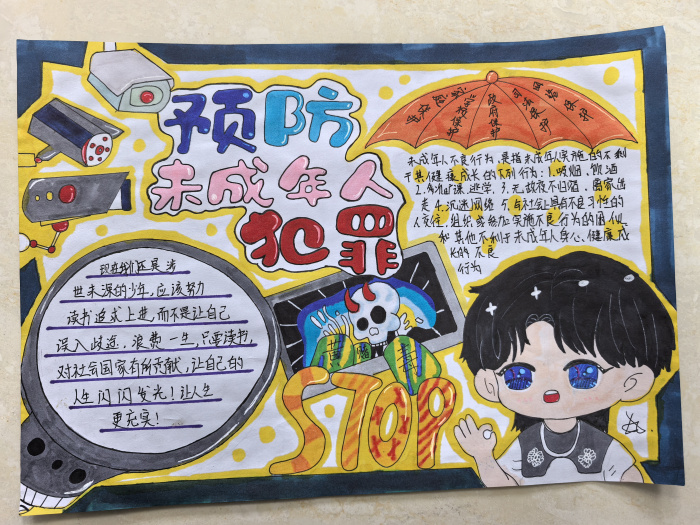 预防
未成年人
犯罪
政府保护
司法保护
网络保护
未成年人不良行为,是指未成年人实施的不利
于其健康成长的下列行为:1.吸烟、饮酒
2.多次旷课、逃学、3.无故夜不归宿、离家出
走 4.沉迷网络 5.与社会上具有不良习性的
人交往,组织或参加实施不良行为的团伙
和其他不利于未成年人身心健康成
长的不良
行为
现在我们还是涉
世未深的少年,应该努力
读书追求上进,而不是让自己
误入歧途,浪费一生,只要读书,
对社会国家有所贡献,让自己的
人生闪闪发光!让人生
更充实!
STOP